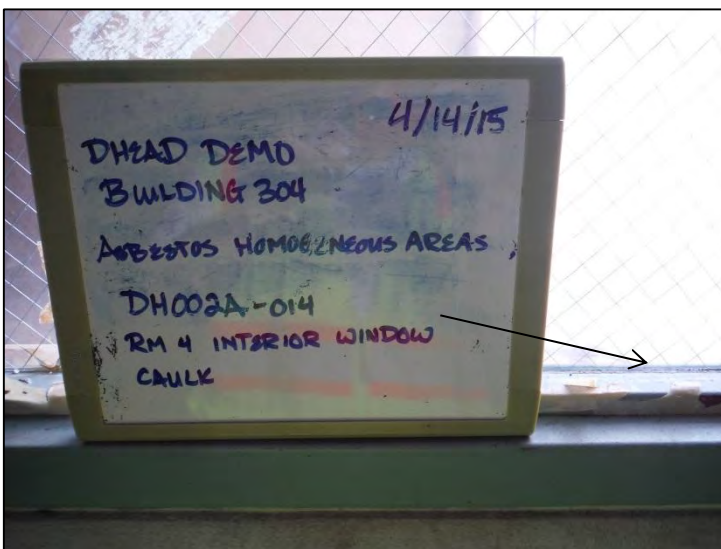 4/14/15
DHEAD DEMO
BUILDING 304
ASBESTOS HOMOGENEOUS AREAS,
DH002A-014
RM 4 INTERIOR WINDOW
CAULK